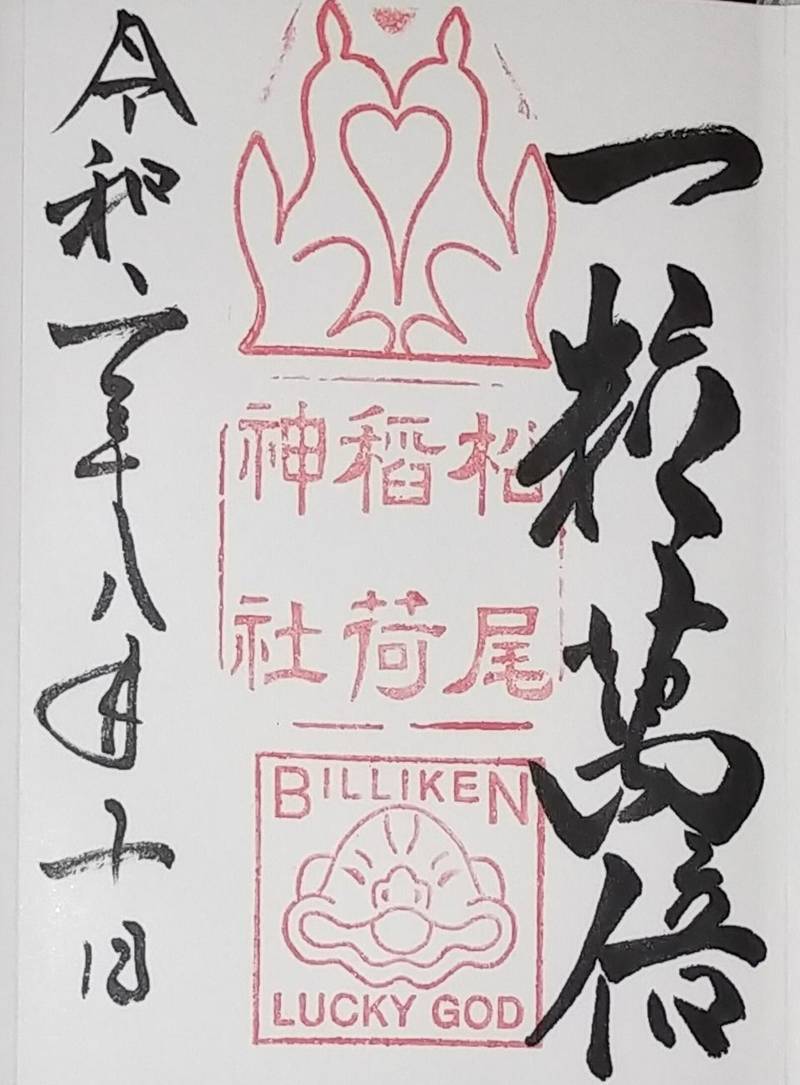 一粒萬倍
松尾
稲荷
神社
BILLIKEN
LUCKY GOD
令和二年八月十日